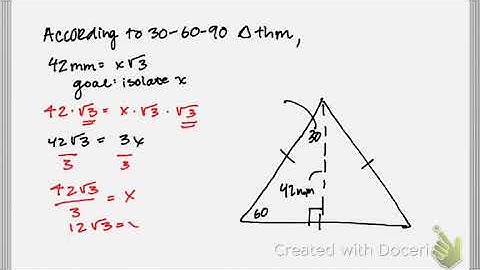 According to 30-60-90 Δ thm,
42mm = x√3
goal: isolate x
42·√3 = x·√3·√3
42√3 = 3x
3 3
42√3 = x
3
12√3 = x
30
42mm
60
Created with Doceri